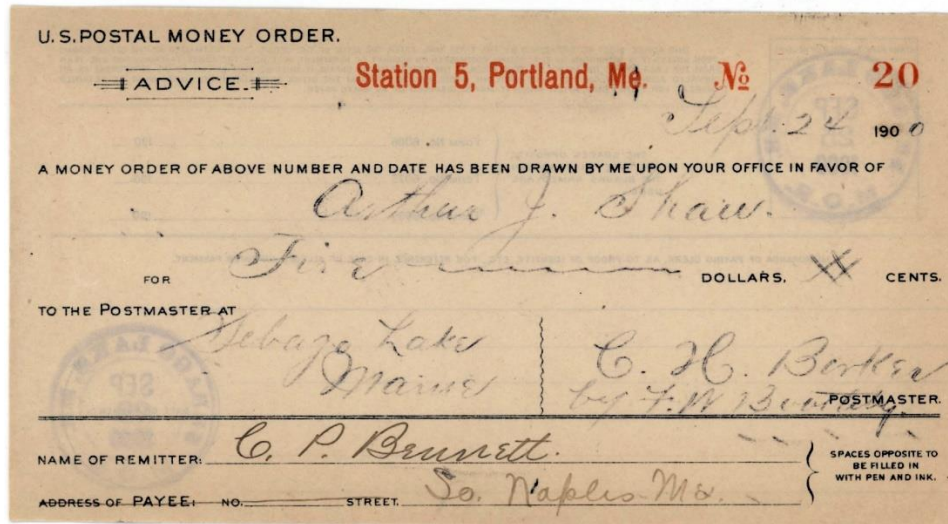 U.S. POSTAL MONEY ORDER.
ADVICE.
Station 5, Portland, Me. No 20
Sept. 24 1900
A MONEY ORDER OF ABOVE NUMBER AND DATE HAS BEEN DRAWN BY ME UPON YOUR OFFICE IN FAVOR OF
Arthur J. Shaw.
FOR Five DOLLARS, XX CENTS.
TO THE POSTMASTER AT
Sebago Lake
Maine
C. H. Barker
by F. W. POSTMASTER.
NAME OF REMITTER: C. P. Bennett.
ADDRESS OF PAYEE: NO. STREET, So. Naples Me.
SPACES OPPOSITE TO
BE FILLED IN
WITH PEN AND INK.